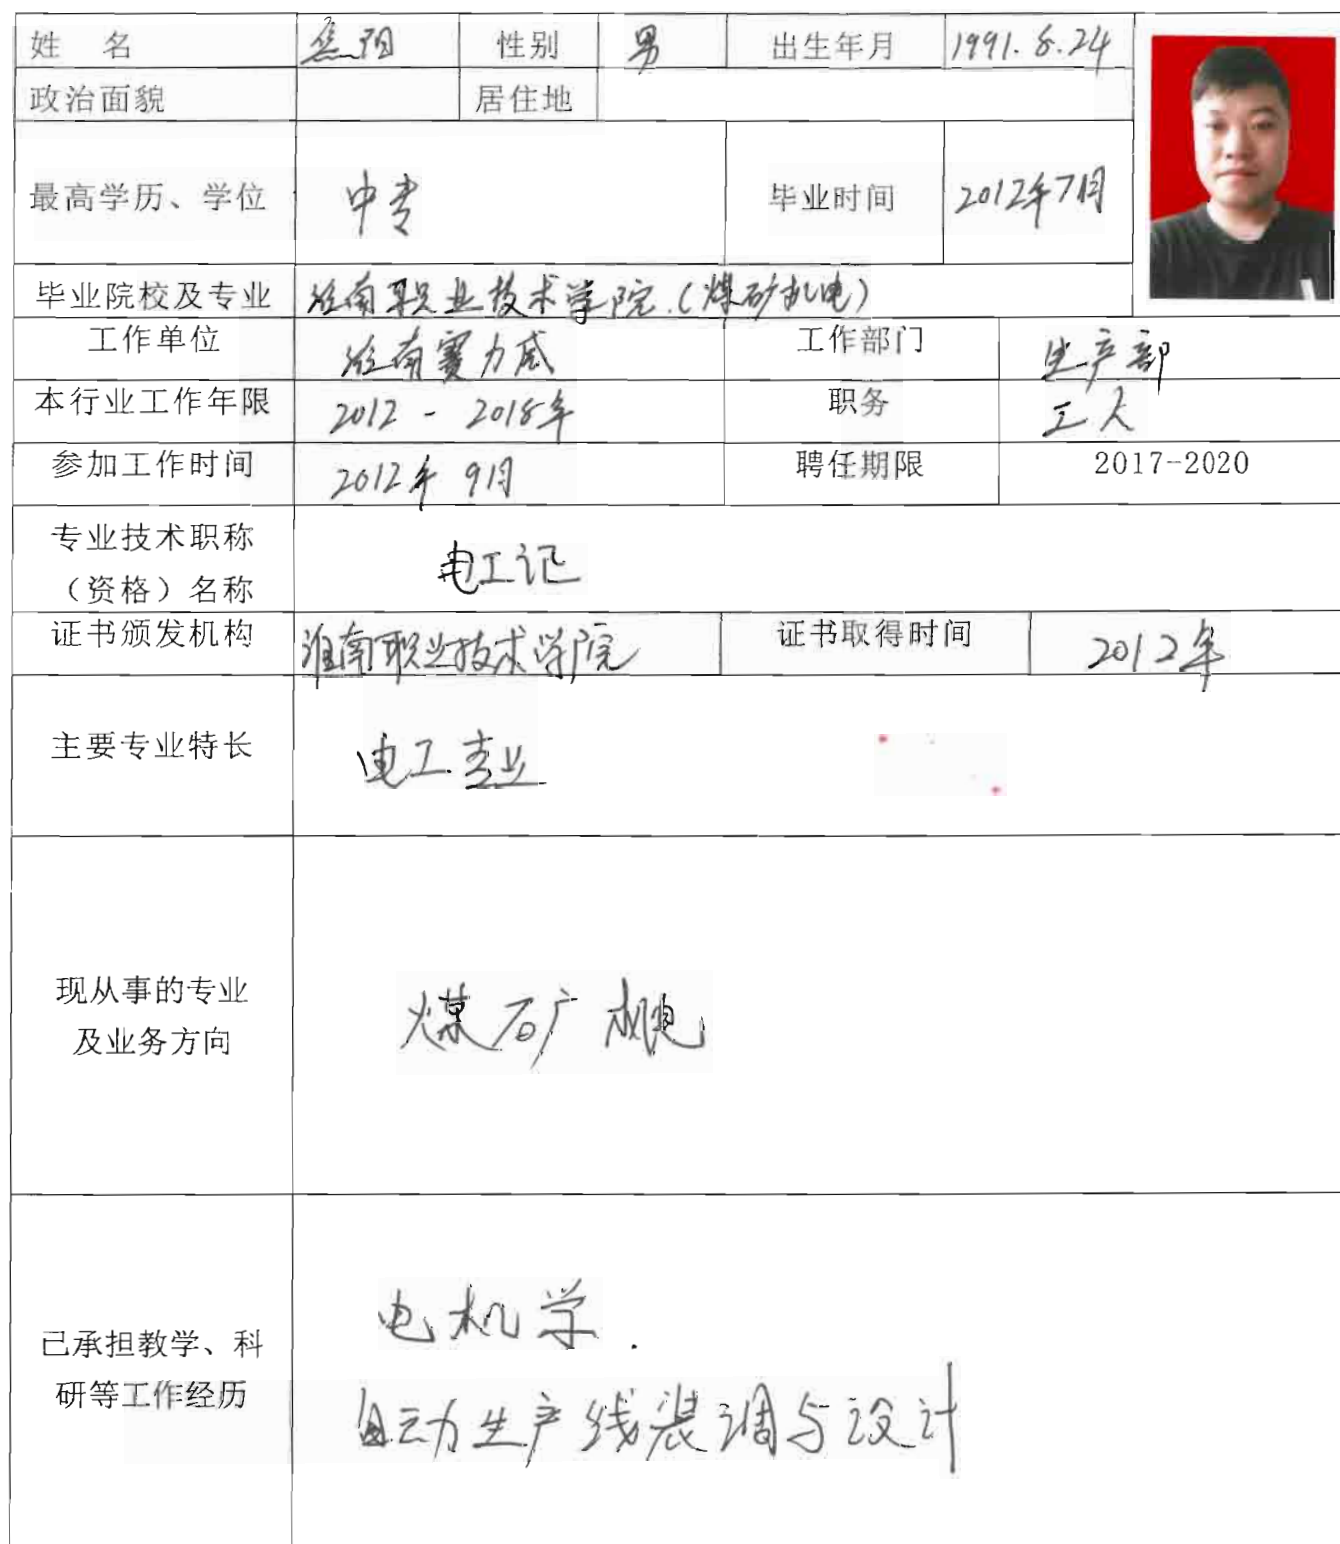 姓 名 焦阳 性别 男 出生年月 1991.8.24
政治面貌 居住地
最高学历、学位 中专 毕业时间 2012年7月
毕业院校及专业 淮南职业技术学院.(煤矿机电)
工作单位 淮南赛力威 工作部门 生产部
本行业工作年限 2012 - 2018年 职务 工人
参加工作时间 2012年 9月 聘任期限 2017-2020
专业技术职称
(资格)名称 电工证
证书颁发机构 淮南职业技术学院 证书取得时间 2012年
主要专业特长 电工专业
现从事的专业
及业务方向 煤矿机电
已承担教学、科
研等工作经历 电机学.
自动生产线装调与设计